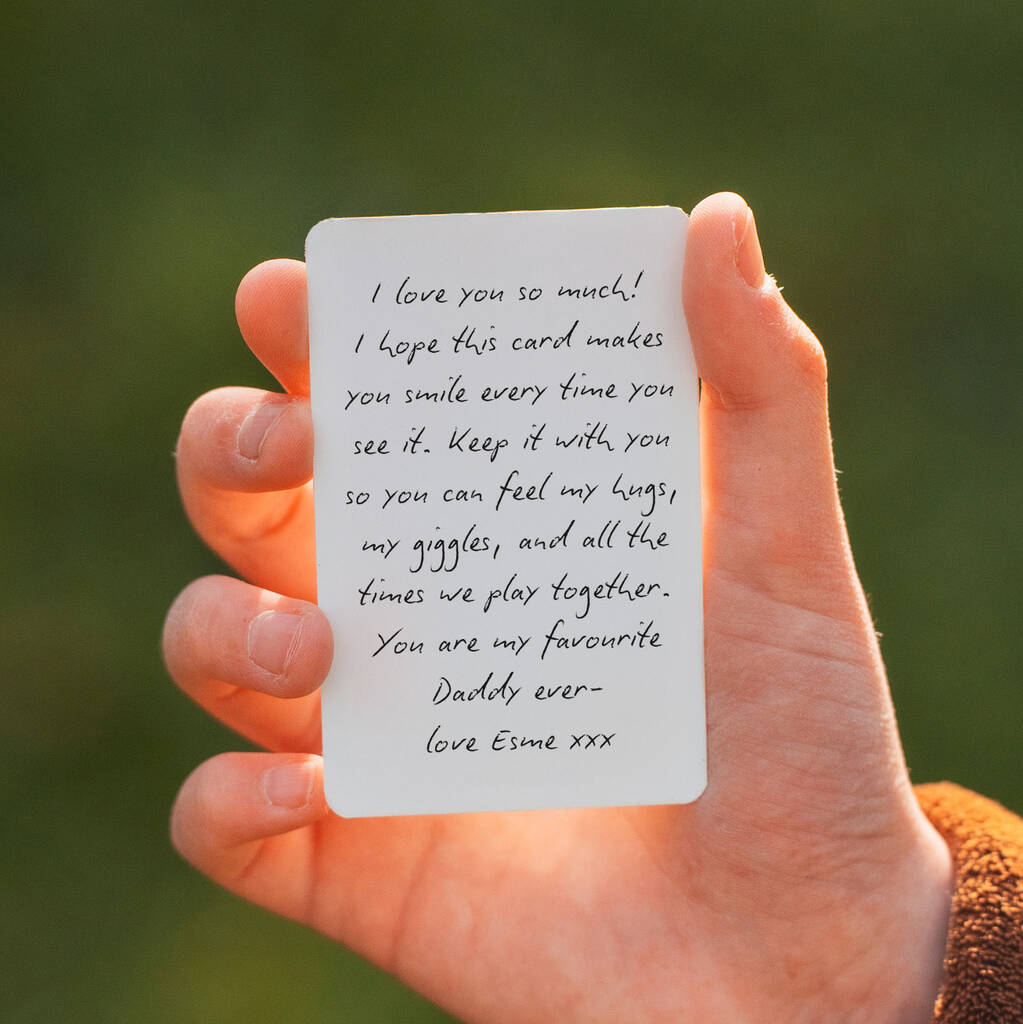 I love you so much!
I hope this card makes
you smile every time you
see it. Keep it with you
so you can feel my hugs,
my giggles, and all the
times we play together.
You are my favourite
Daddy ever-
love Esme xxx